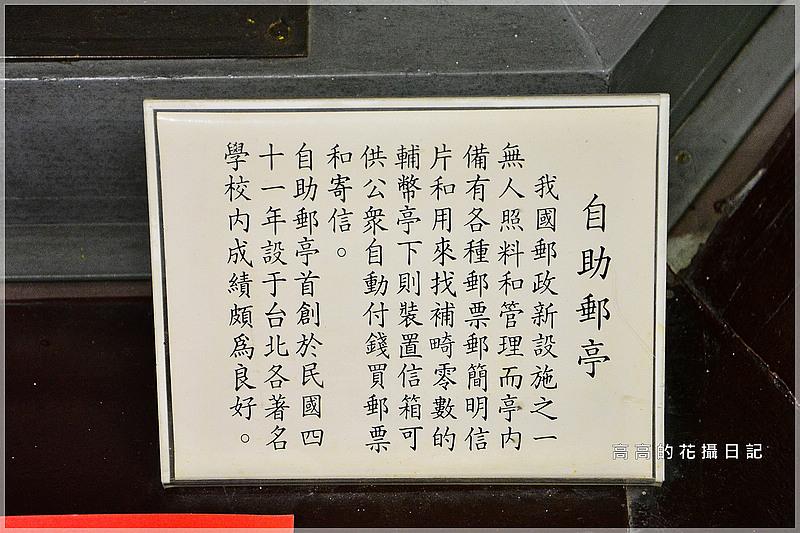 自助郵亭
我國郵政新設施之一
無人照料和管理而亭內
備有各種郵票郵簡明信
片和用來找補畸零數的
輔幣亭下則裝置信箱可
供公衆自動付錢買郵票
和寄信。
自助郵亭首創於民國四
十一年設于台北各著名
學校內成績頗為良好。
高高的花攝日記